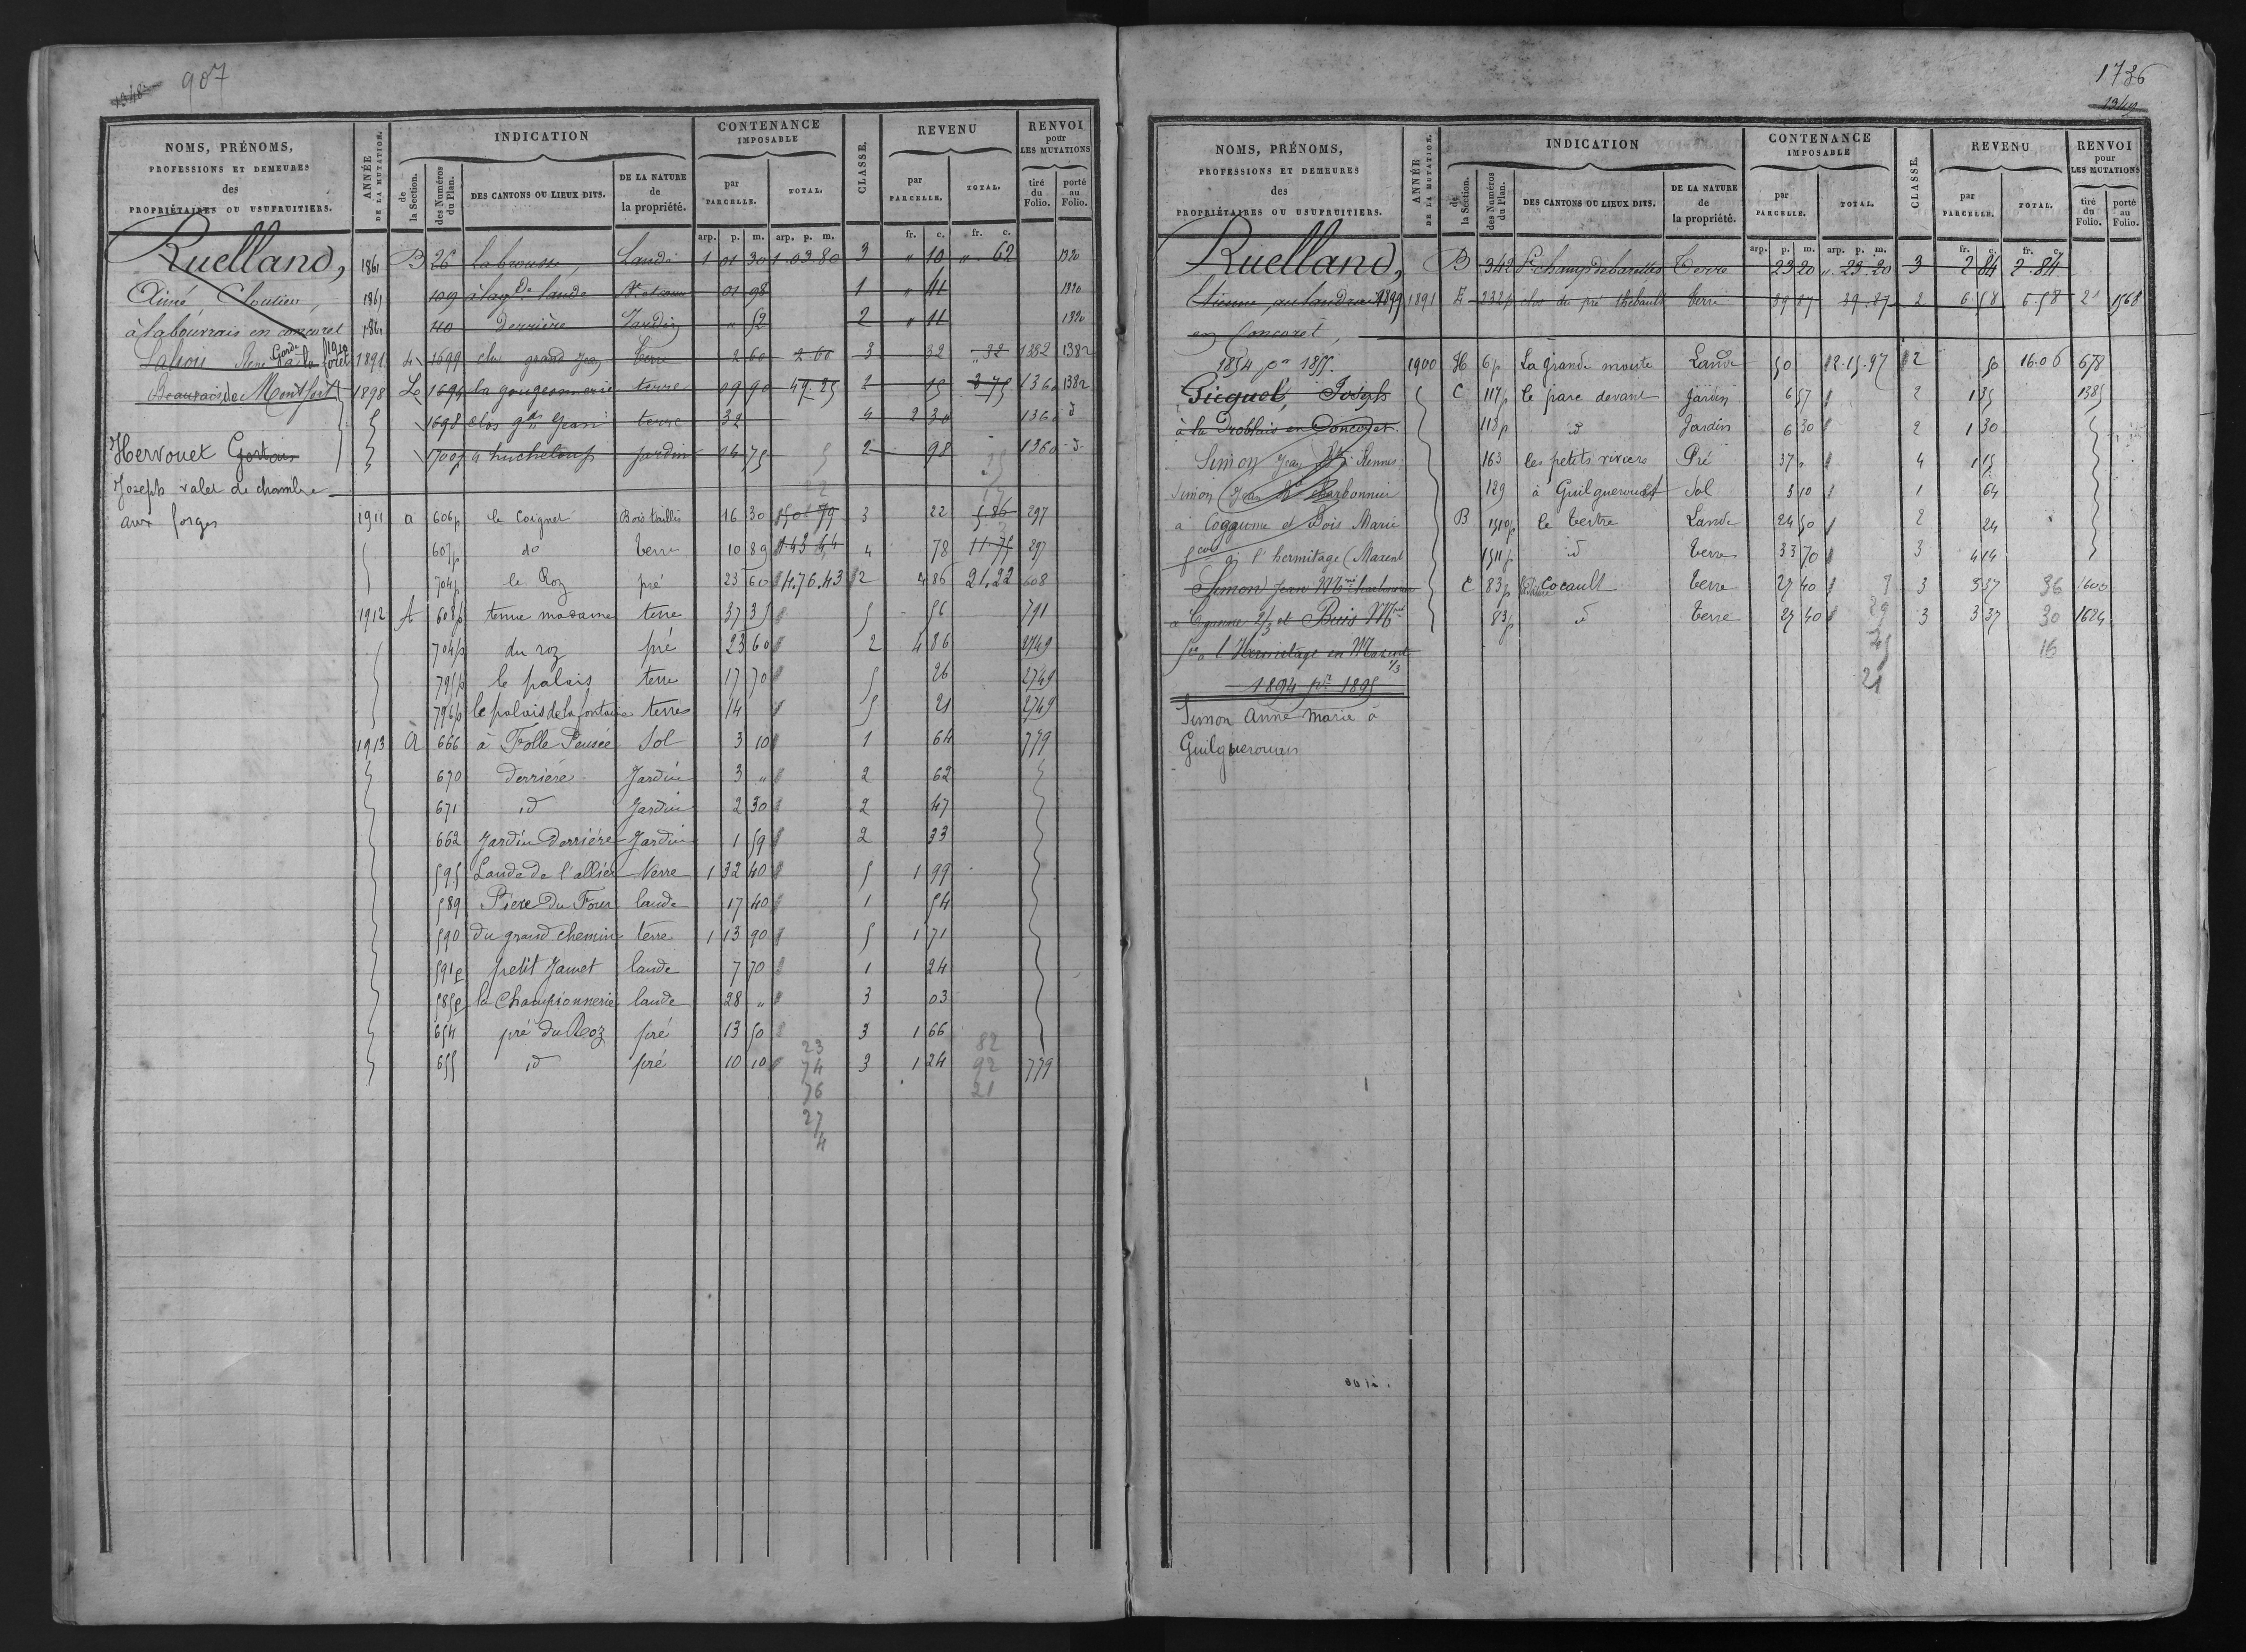 1348 907
NOMS, PRÉNOMS,
PROFESSIONS ET DEMEURES
des
PROPRIÉTAIRES OU USUFRUITIERS.
ANNÉE DE LA MUTATION.
INDICATION
de la Section.
des Numéros du Plan.
DES CANTONS OU LIEUX DITS.
DE LA NATURE de la propriété.
CONTENANCE IMPOSABLE
par PARCELLE.
TOTAL.
CLASSE.
REVENU
par PARCELLE.
TOTAL.
RENVOI pour LES MUTATIONS
tiré du Folio.
porté au Folio.
arp. p. m. arp. p. m. fr. c. fr. c.
Ruelland,
Aimé Cloutier,
à labouvrais en concoret
Garde 1910
à la foret
Beauvais de Montfort
Hervouet
Joseph valet de chambre
aux forges
1861 B 26 la brousse, Lande 1 01 30 1.03.80 3 " 10 " 62 1320
1861 109 à la gde lande 01 98 1 " 41 1320
1861 110 derrière Jardin " 52 2 " 11 1320
1891 1699 clos grand Jean terre 2 60 2 60 3 32 " 32 1382 1382
1898 1694 la gougeonnerie terre 09 90 47-25 2 15 2 75 1360 1382
1698 clos gd Jean terre 32 4 2 30 1360 d
1700p à hucheloup jardin 14 75 2 98 1360 d
1911 a 606p le Coignet Bois taillis 16 30 50 79 3 22 5.86 297
607p do terre 10 89 1.43 64 4 78 11.75 297
704p le Roz pré 23 60 4.76.43 2 4 86 21.22 608
1912 A 608p tenue madame terre 37 35 5 - 56 791
704p du roz pré 23 60 2 4 86 2749
795p le palais terre 17 70 5 26 2749
796p le palais de la fontaine terres 14 5 21 2749
1913 A 666 à Folle Pensée Sol 3 10 1 64 779
670 derrière Jardin 3 " 2 62
671 id Jardin 2 30 2 47
662 Jardin Derrière Jardin 1 59 2 33
595 Lande de l'allier Terre 1 32 40 5 1 99
589 Pièce Du Four lande 17 40 1 54
590 du grand chemin terre 1 13 90 5 1 71
591p petit Jamet lande 7 70 1 24
585p la Championnerie lande 28 " 3 03
654 pré du Roz pré 13 50 3 1 66
655 id pré 10 10 3 1 24 779
23 82
74 92
76 21
27
4
1736
1349
NOMS, PRÉNOMS,
PROFESSIONS ET DEMEURES
des
PROPRIÉTAIRES OU USUFRUITIERS.
ANNÉE DE LA MUTATION.
INDICATION
de la Section.
des Numéros du Plan.
DES CANTONS OU LIEUX DITS.
DE LA NATURE de la propriété.
CONTENANCE IMPOSABLE
par PARCELLE.
TOTAL.
CLASSE.
REVENU
par PARCELLE.
TOTAL.
RENVOI pour LES MUTATIONS
tiré du Folio.
porté au Folio.
arp. p. m. arp. p. m. fr. c. fr. c.
Ruelland,
Etienne, au landrau 1899
en Concoret,
1854 pr 1855.
Gicquel, Joseph
à la Droblais en Concoret.
Simon Jean à Rennes
Simon Jean Charbonnier
à Coganne et Bois Marie
à l'hermitage (Maxent
Simon Jean
2/3 et Bois
à l'Hermitage en Maxent 1/3
1894 pr 1895
Simon Anne Marie à
Guilguerouan
B 342 champ de barettes Terre 23 20 " 23.20 3 2 84 2.84
1891 E 232p clos du pré thébault terre 39 87 39.87 2 6 58 6.58 21 1568
1900 H 6p La grande moute Lande 50 2.15.97 2 50 16.06 678
C 117p le parc devant Jardin 6 57 2 1 35 1385
113p d Jardin 6 30 2 1 30
163 les petits riviers Pré 37 " 4 1 15
129 à Guilguerouet Sol 3 10 1 64
B 1510p le tertre Lande 24 50 2 24
1511p d terre 33 70 3 4 14
C 83p Cocault terre 27 40 3 3 37 36 1600
83p d Terre 27 40 29 3 3 37 30 1624
16
21